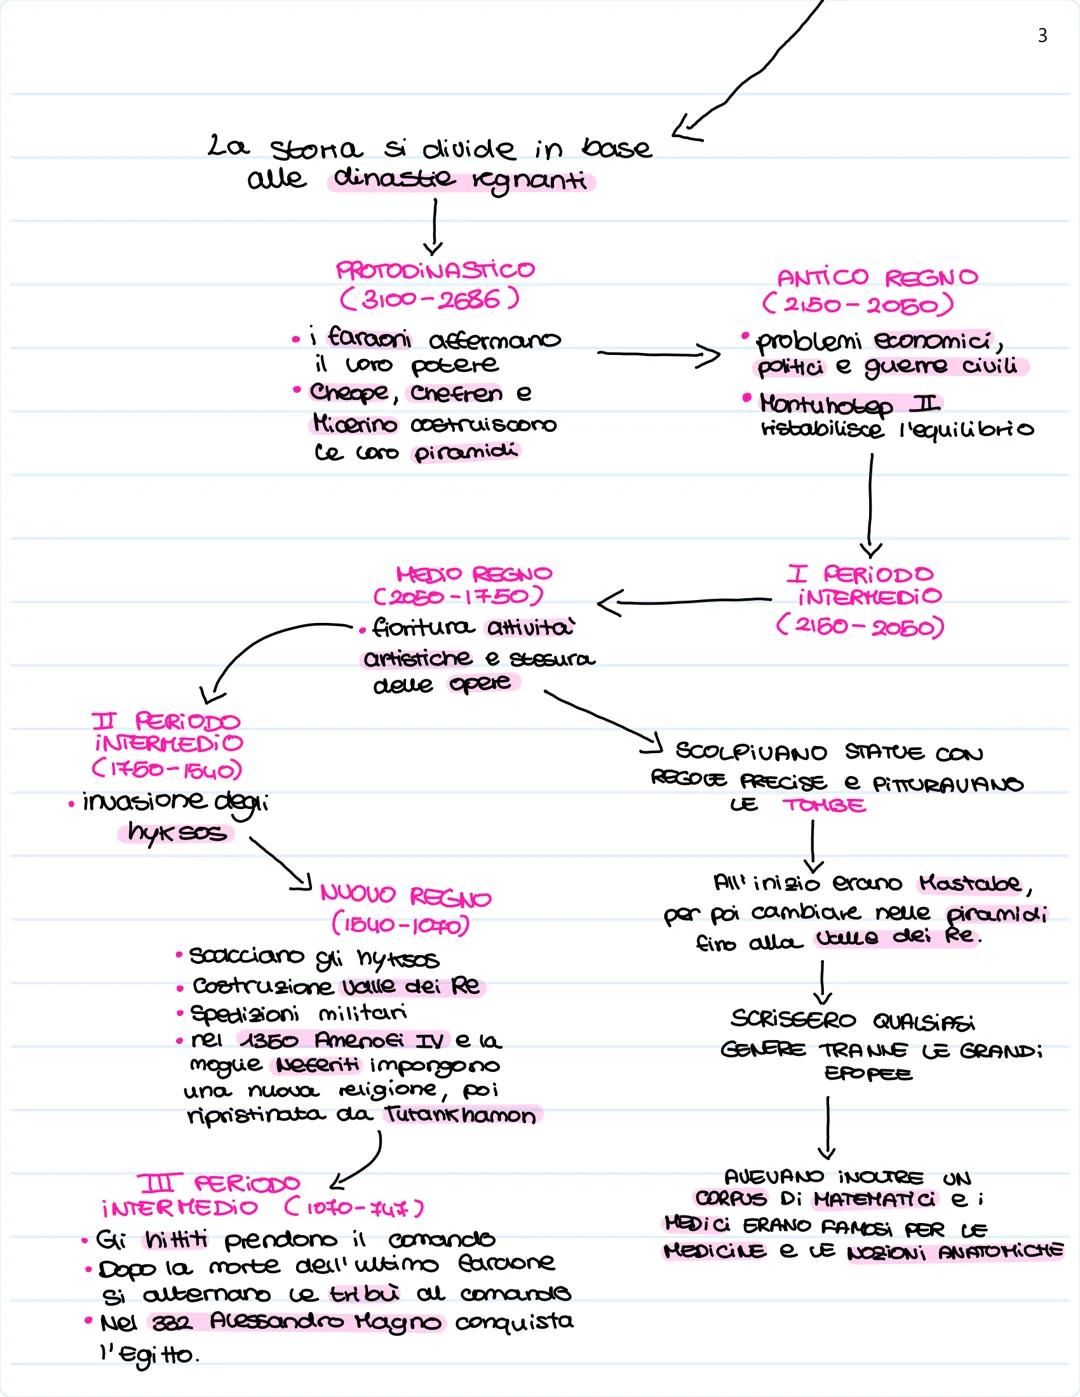 3
La storia si divide in base
alle dinastie regnanti
PROTODINASTICO
(3100-2686)
• i faraoni affermano
il loro potere
• Cheope, Chefren e
Micerino costruiscono
le loro piramidi
ANTICO REGNO
(2150-2050)
• problemi economici,
politici e guerre civili
• Montuhotep II
ristabilisce l'equilibrio
I PERIODO
INTERMEDIO
(2150-2050)
MEDIO REGNO
(2050-1750)
• fioritura attività
artistiche e stesura
delle opere
II PERIODO
INTERMEDIO
(1750-1540)
• invasione degli
hyksos
NUOVO REGNO
(1540-1070)
• Scacciano gli hyksos
• Costruzione Valle dei Re
• Spedizioni militari
• nel 1350 Amenofi IV e la
moglie Neferiti impongono
una nuova religione, poi
ripristinata da Tutankhamon
III PERIODO
INTERMEDIO (1070-747)
• Gli hittiti prendono il comando
• Dopo la morte dell'ultimo faraone
si alternano le tribù al comando
• Nel 332 Alessandro Magno conquista
l'Egitto.
SCOLPIVANO STATUE CON
REGOLE PRECISE e PITTURAVANO
LE TOMBE
All'inizio erano Mastabe,
per poi cambiare nelle piramidi
fino alla Valle dei Re.
SCRISSERO QUALSIASI
GENERE TRANNE LE GRANDI
EPOPEE
AVEVANO INOLTRE UN
CORPUS DI MATEMATICI e i
MEDICI ERANO FAMOSI PER LE
MEDICINE e LE NOZIONI ANATOMICHE